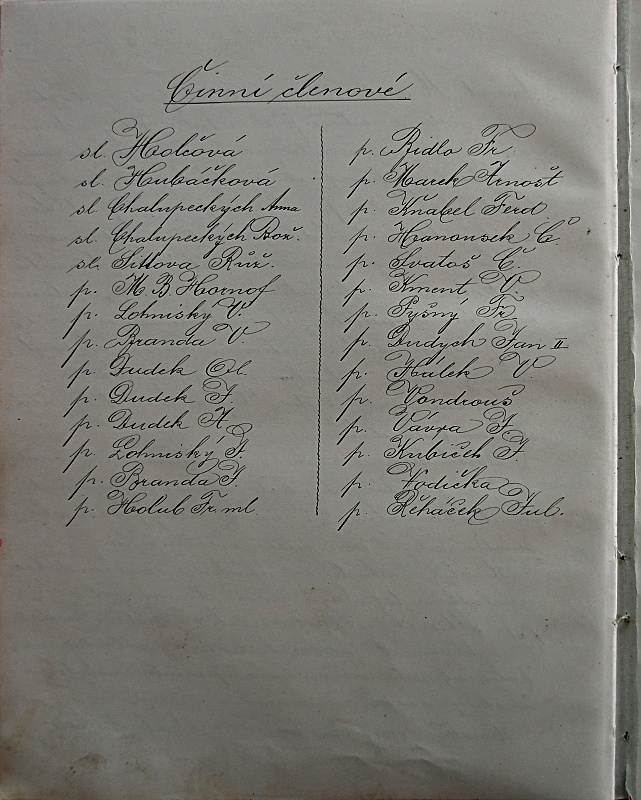 Činní členové
sl. Holcová
sl. Hubáčková
sl. Chalupeckých Anna
sl. Chalupeckých Bož.
sl. Sittova Růž.
p. M. B. Hornof
p. Lomiský V.
p. Branda V.
p. Dudek Ol.
p. Dudek J.
p. Dudek A.
p. Lomiský J.
p. Branda J.
p. Holub Fr. ml.
p. Ridlo Fr.
p. Marek Arnošt
p. Knabel Ferd.
p. Hanousek Č.
p. Svatoš Č.
p. Kment V.
p. Pyšný Fr.
p. Dudych Jan II
p. Hálek V.
p. Vondrouš
p. Vávra J.
p. Kubíček J.
p. Vodička
p. Řeháček Jul.